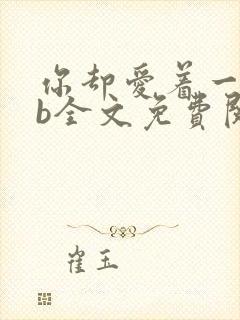 你却爱着一
b全文免费
崔玉